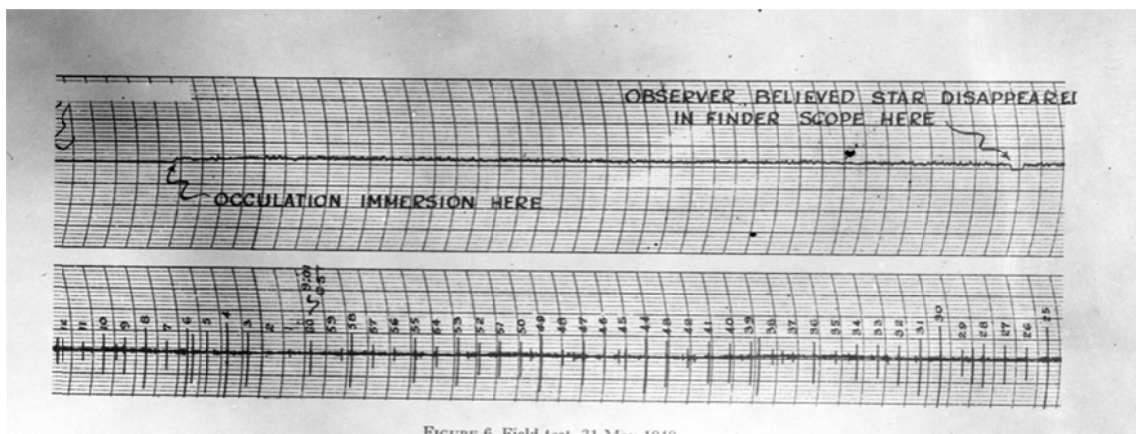 OBSERVER BELIEVED STAR DISAPPEARE
IN FINDER SCOPE HERE
OCCULATION IMMERSION HERE
12 11 10 9 8 7 6 5 4 3 2 1 60 59 58 57 56 55 54 53 52 51 50 49 48 47 46 45 44 43 42 41 40 39 38 37 36 35 34 33 32 31 30 29 28 27 26 25
FIGURE 6 Field test, 31 May 1949